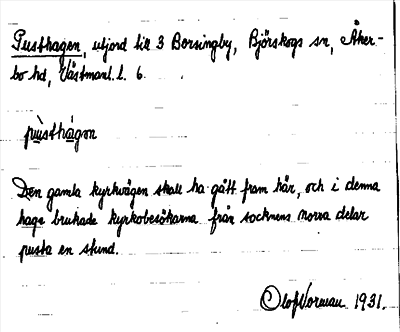 Pusthagen, utjord till 3 Borsingby, Björskogs sn, Åker-
bo hd, Västmanl. l. 6.
pùsthàgɑn
Den gamla kyrkvägen skall ha gått fram här, och i denna
hage brukade kyrkobesökarna från socknens norra delar
pusta en stund.
Olof Norman 1931.